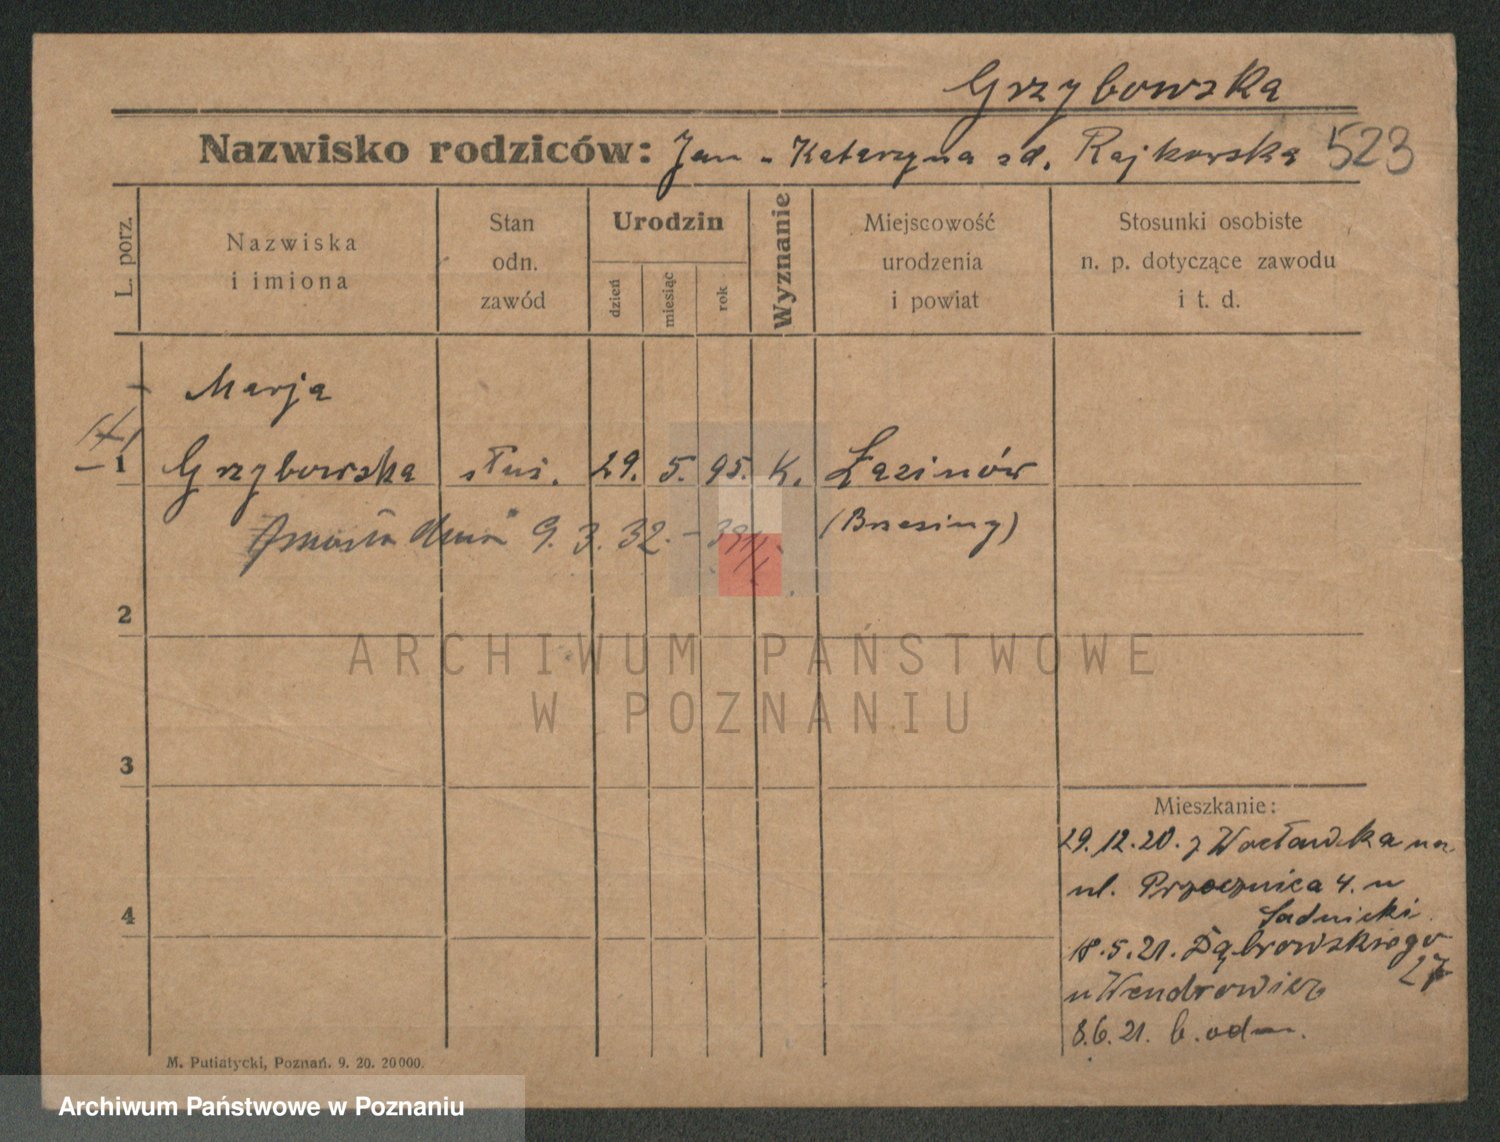 Grzybowska
Nazwisko rodziców: Jan - Katarzyna zd. Rajkowska 523
L. porz.
Nazwiska
i imiona
Stan
odn.
zawód
Urodzin
dzień
miesiąc
rok
Wyznanie
Miejscowość
urodzenia
i powiat
Stosunki osobiste
n. p. dotyczące zawodu
i t. d.
Marja
1 Grzybowska służ. 29. 5. 95. K. Łazinów
(Brzeziny)
Zmarła dnia 9. 3. 32.
2
3
4
Mieszkanie:
29.12.20. z Wocławka na
ul. Przecznica 4. u
Sadnicki
18.5.21. Dąbrowskiego
27
u Wendrowicz
8.6.21. b. odm.
M. Putiatycki, Poznań. 9. 20. 20000.
ARCHIWUM PAŃSTWOWE
W POZNANIU
Archiwum Państwowe w Poznaniu